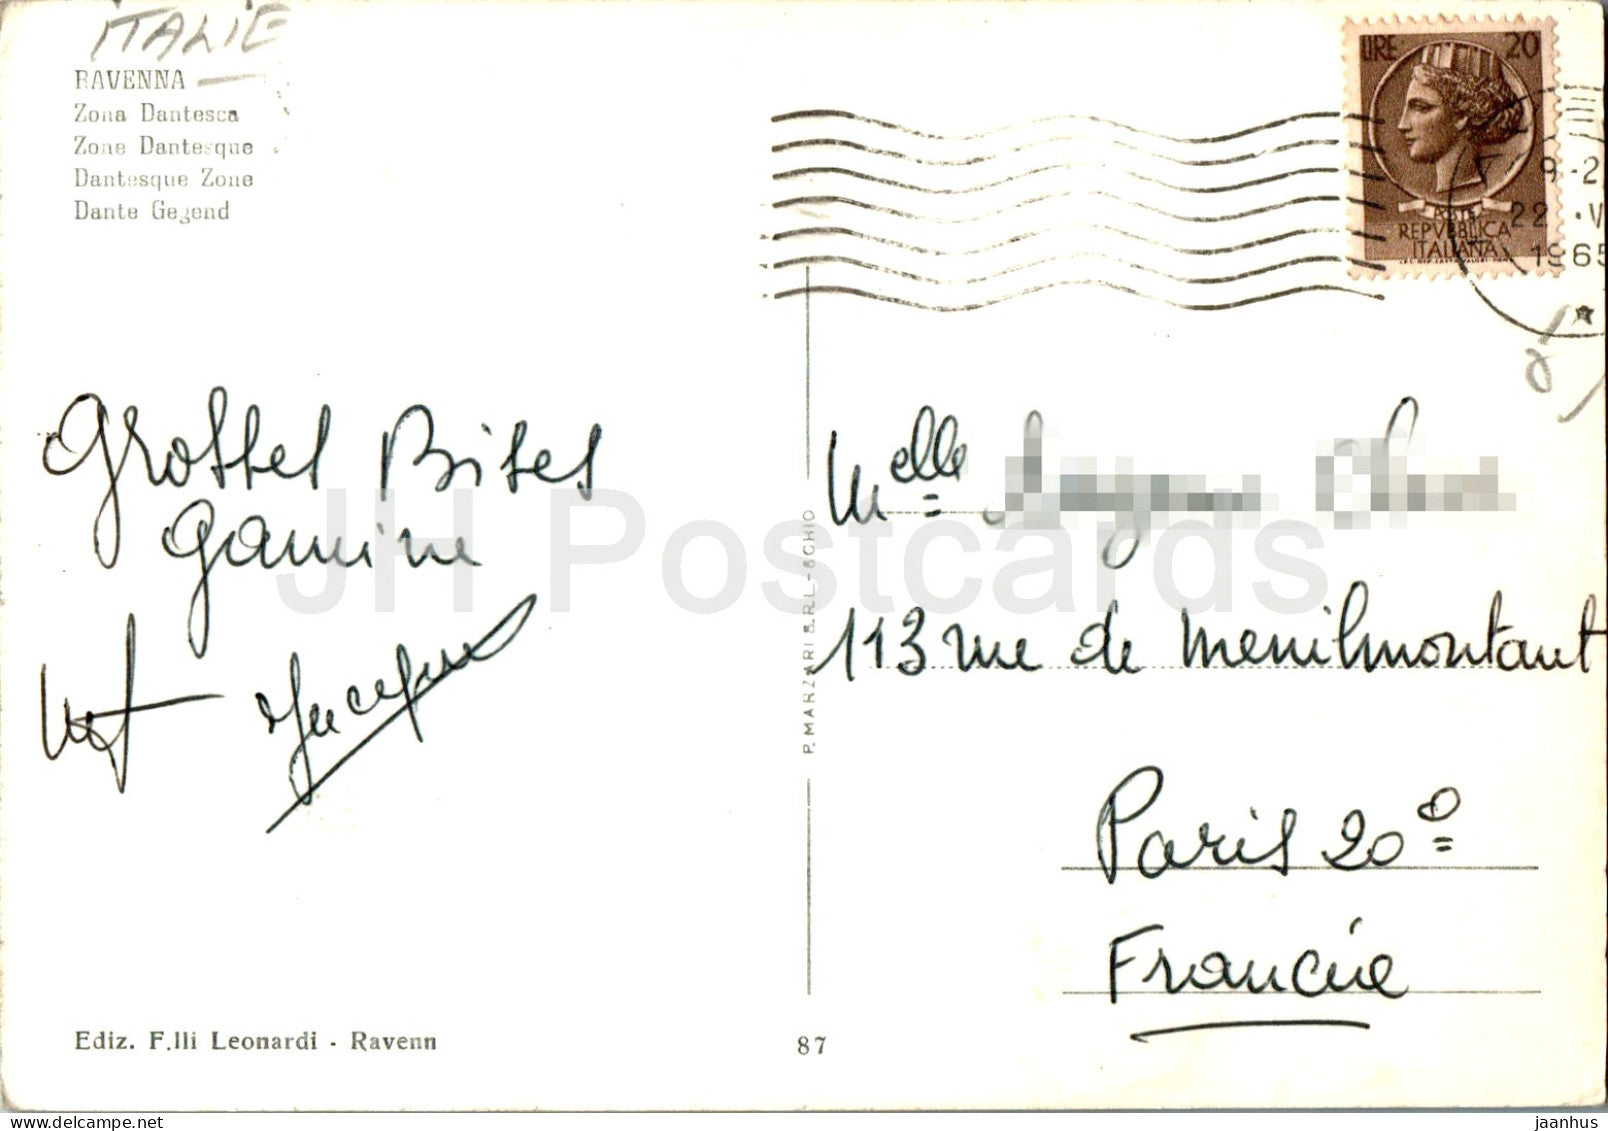 ITALIE
RAVENNA
Zona Dantesca
Zone Dantesque
Dantesque Zone
Dante Gegend
LIRE 20
POSTE
REPVBBLICA
ITALIANA
9-2
22 .V
1965
Grosses Bises
Gamine
Melle
113 rue de Menilmontant
Paris 20e
Francie
P. MARZARI S.R.L.-SCHIO
Ediz. F.lli Leonardi - Ravenn
87
JH Postcards
jaanhus